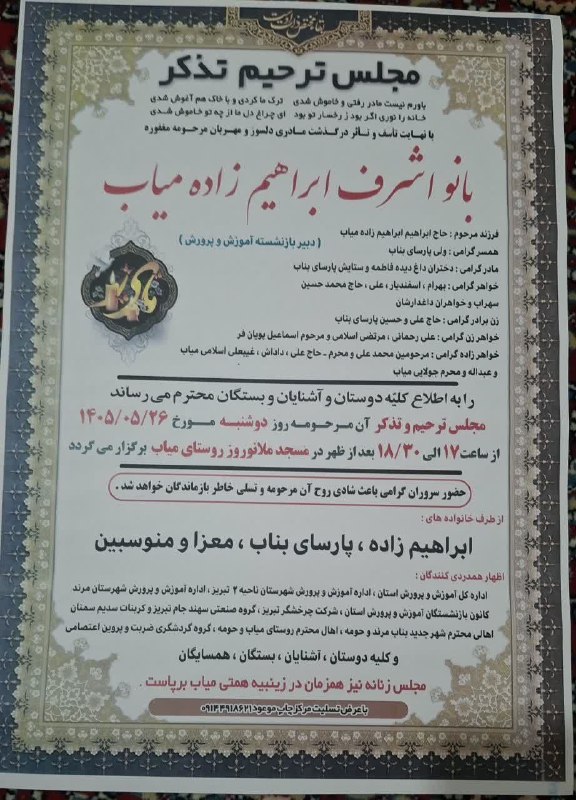 مجلس ترحیم تذکر
باورم نیست مادر رفتی و خاموش شدی ترک ما کردی و با خاک هم آغوش شدی
خانه را نوری اگر بود ز رخسار تو بود ای چراغ دل ما از چه تو خاموش شدی
با نهایت تأسف و تأثر درگذشت مادری دلسوز و مهربان مرحومه مغفوره
بانو اشرف ابراهیم زاده میاب
( دبیر بازنشسته آموزش و پرورش )
فرزند مرحوم : حاج ابراهیم ابراهیم زاده میاب
همسر گرامی : ولی پارسای بناب
مادر گرامی : دختران داغ دیده فاطمه و ستایش پارسای بناب
خواهر گرامی : بهرام ، اسفندیار ، علی ، حاج محمد حسین
سهراب و خواهران داغدارشان
زن برادر گرامی : حاج علی و حسین پارسای بناب
خواهر زن گرامی : علی رحمانی ، مرتضی اسلامی و مرحوم اسماعیل پویان فر
خواهر زاده گرامی : مرحومین محمد علی و محرم - حاج علی ، داداش ، غیبعلی اسلامی میاب
و عبداله و محرم جولایی میاب
را به اطلاع کلیه دوستان و آشنایان و بستگان محترم می رساند
مجلس ترحیم و تذکر آن مرحومه روز دوشنبه مورخ ۱۴۰۵/۰۵/۲۶
از ساعت ۱۷ الی ۱۸/۳۰ بعد از ظهر در مسجد ملانوروز روستای میاب برگزار می گردد
حضور سروران گرامی باعث شادی روح آن مرحومه و تسلی خاطر بازماندگان خواهد شد .
از طرف خانواده های :
ابراهیم زاده ، پارسای بناب ، معزا و منوسبین
اظهار همدردی کنندگان :
اداره کل آموزش و پرورش استان ، اداره آموزش و پرورش شهرستان ناحیه ۲ تبریز ، اداره آموزش و پرورش شهرستان مرند
کانون بازنشستگان آموزش و پرورش استان ، شرکت چرخشگر تبریز ، گروه صنعتی سهند جام تبریز و کربنات سدیم سمنان
اهالی محترم شهر جدید بناب مرند و حومه ، اهال محترم روستای میاب و حومه ، گروه گردشگری ضربت و پروین اعتصامی
و کلیه دوستان ، آشنایان ، بستگان ، همسایگان
مجلس زنانه نیز همزمان در زینبیه همتی میاب برپاست .
با عرض تسلیت مرکز چاپ موعود ۰۹۱۴۴۹۱۸۶۲۱